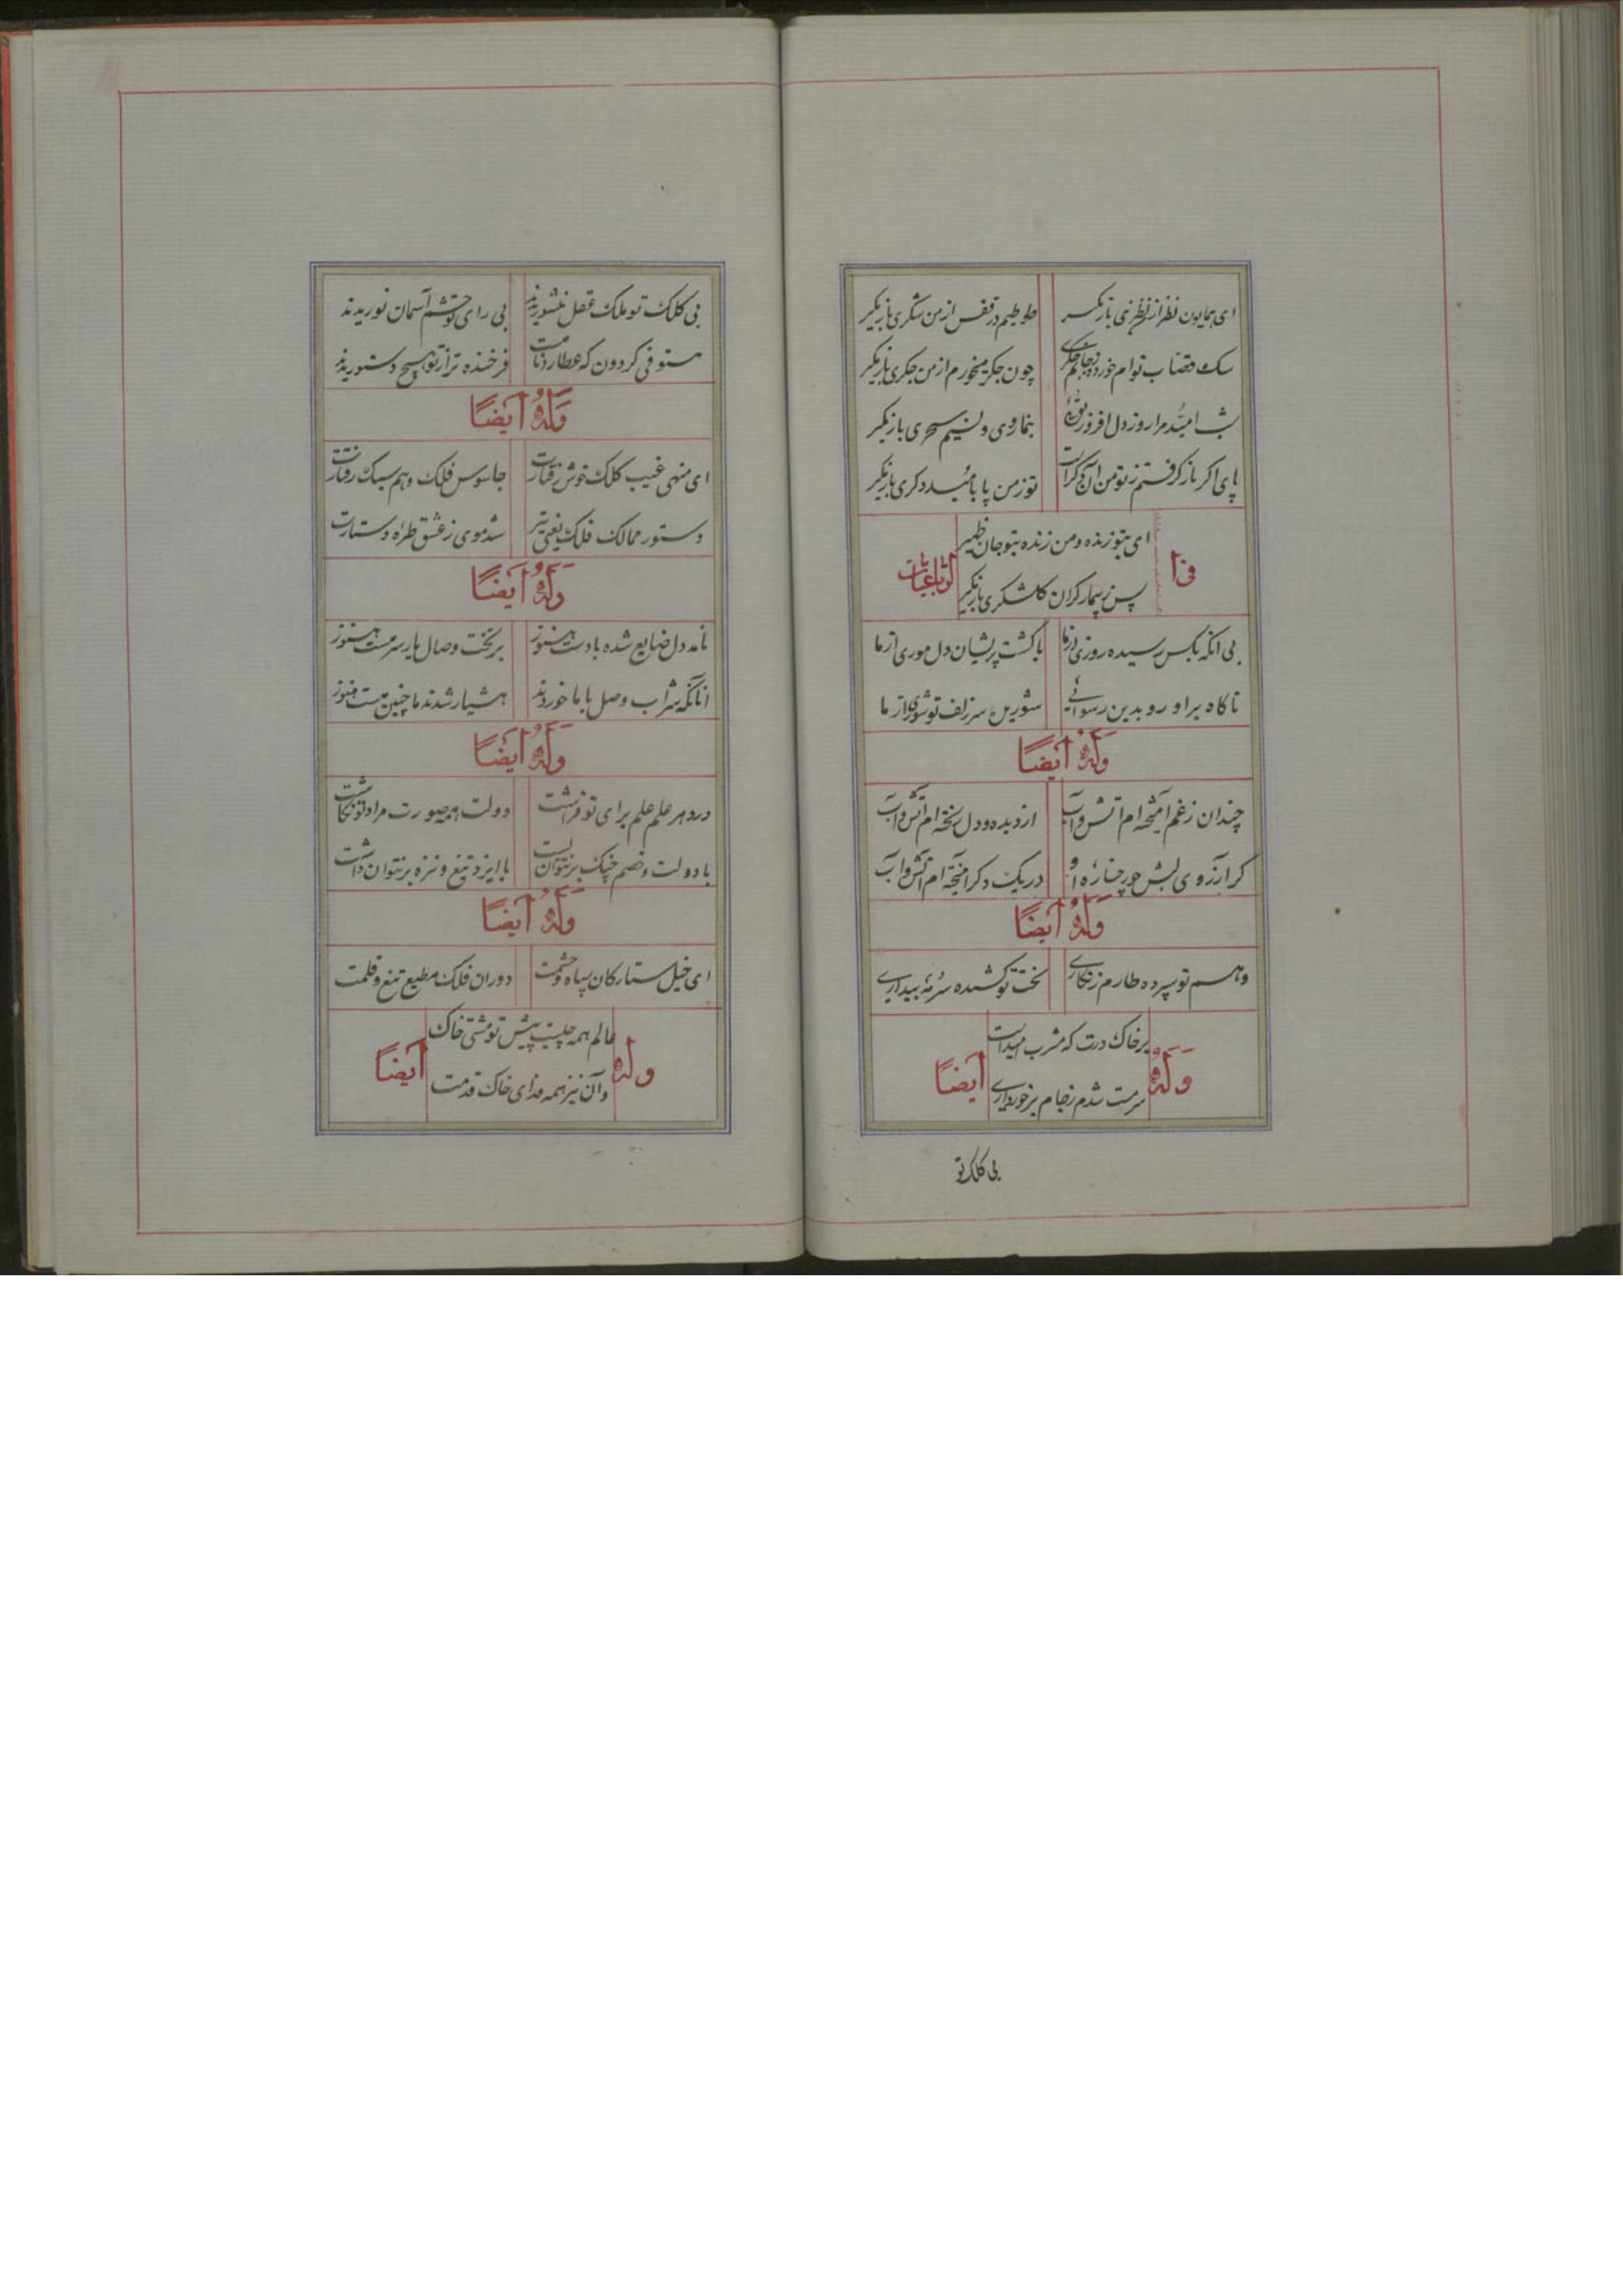 ای همایون نظر از نظری باز مگیر
طوطیم در قفس از من شکری باز مگیر
سک قصاب توام خورده ز جانم جگری
چون جکر میخورم از من جکری باز مگیر
شب امید مرا روز دل افروز توئی
بنما روی و نسیم سحری باز مگیر
پای اگر باز گرفتم ز تو من آن دگر است
تو ز من پا بامید دکری باز مگیر
ای بتو زنده و من زنده بتو جان ظهیر
پس ز بیمار کران کلشکری باز مگیر
فی الرباعیات
بی آنکه بکس رسیده روزی ز ما
یا کشت پریشان دل موری از ما
ناکاه براورد بدین رسوائی
شوریده سر زلف تو شوری از ما
وَلَهُ أیضًا
چندان ز غم آمیخته ام آتش و آب
از دیده و دل بیخته ام آتش و آب
کر آرزوی لبش چو رخساره او
در یک دکر آمیخته ام آتش و آب
وَلَهُ أیضًا
وهم تو سپرده طارم زنکاری
بخت تو کشیده سرمه بیداری
بر خاک درت که مشرب امیداست
سرمست شدم ز جام برخورداری
وَلَهُ أیضًا
بی کلک تو
بی کلک تو ملک عقل منشور ندید
بی رای تو چشم آسمان نور ندید
مستوفی کردون که عطارد نامست
فرخنده تر از تو هیچ دستور ندید
وَلَهُ أیضًا
ای منهی غیب کلک خوش رفتارت
جاسوس فلک وهم سبک رفتارت
دستور ممالک فلک یعنی تیر
شد موی ز عشق طره دستارت
وَلَهُ أیضًا
نامد دل ضایع شده با دست هنوز
بر تخت وصال یار سرمست هنوز
آنانکه شراب وصل با ما خوردند
هشیار شدند ما چنین مست هنوز
وَلَهُ أیضًا
در دهر علم علم برای تو فراشت
دولت همه صورت مراد تو نکاشت
با دولت و خصم جنک بر نتوان بست
با ایزد تیغ و نیزه بر نتوان داشت
وَلَهُ أیضًا
ای خیل ستارکان سپاه و حشمت
دوران فلک مطیع تیغ و قلمت
عالم همه چیست پیش تو مشتی خاک
وآن نیز همه فدای خاک قدمت
وله أیضًا